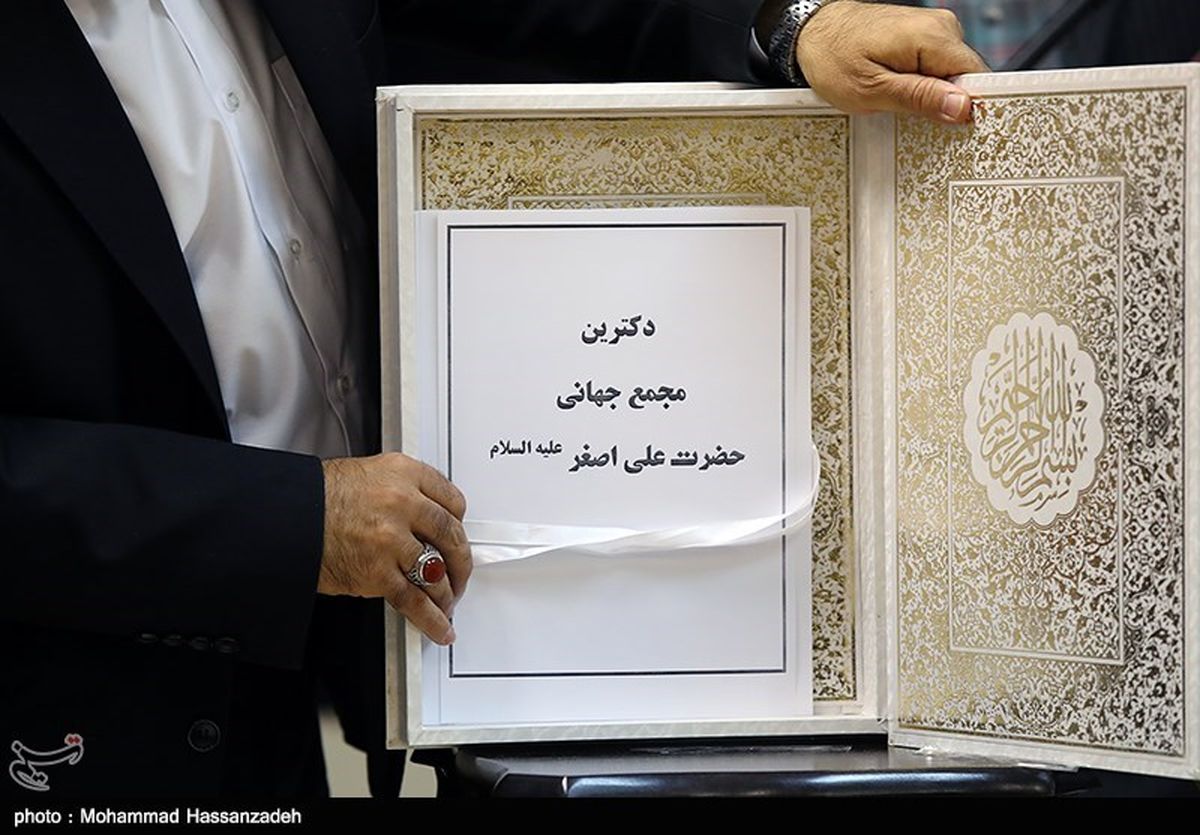 دکترین
مجمع جهانی
حضرت علی اصغر علیه السلام
بسم الله الرحمن الرحیم
تسنیم
photo : Mohammad Hassanzadeh